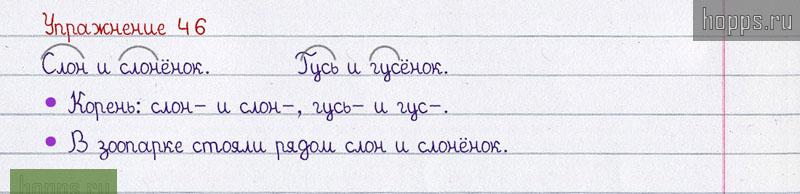 Упражнение 46
hopps.ru
Слон и слонёнок. Гусь и гусёнок.
• Корень: слон- и слон-, гусь- и гус-.
• В зоопарке стояли рядом слон и слонёнок.
hopps.ru